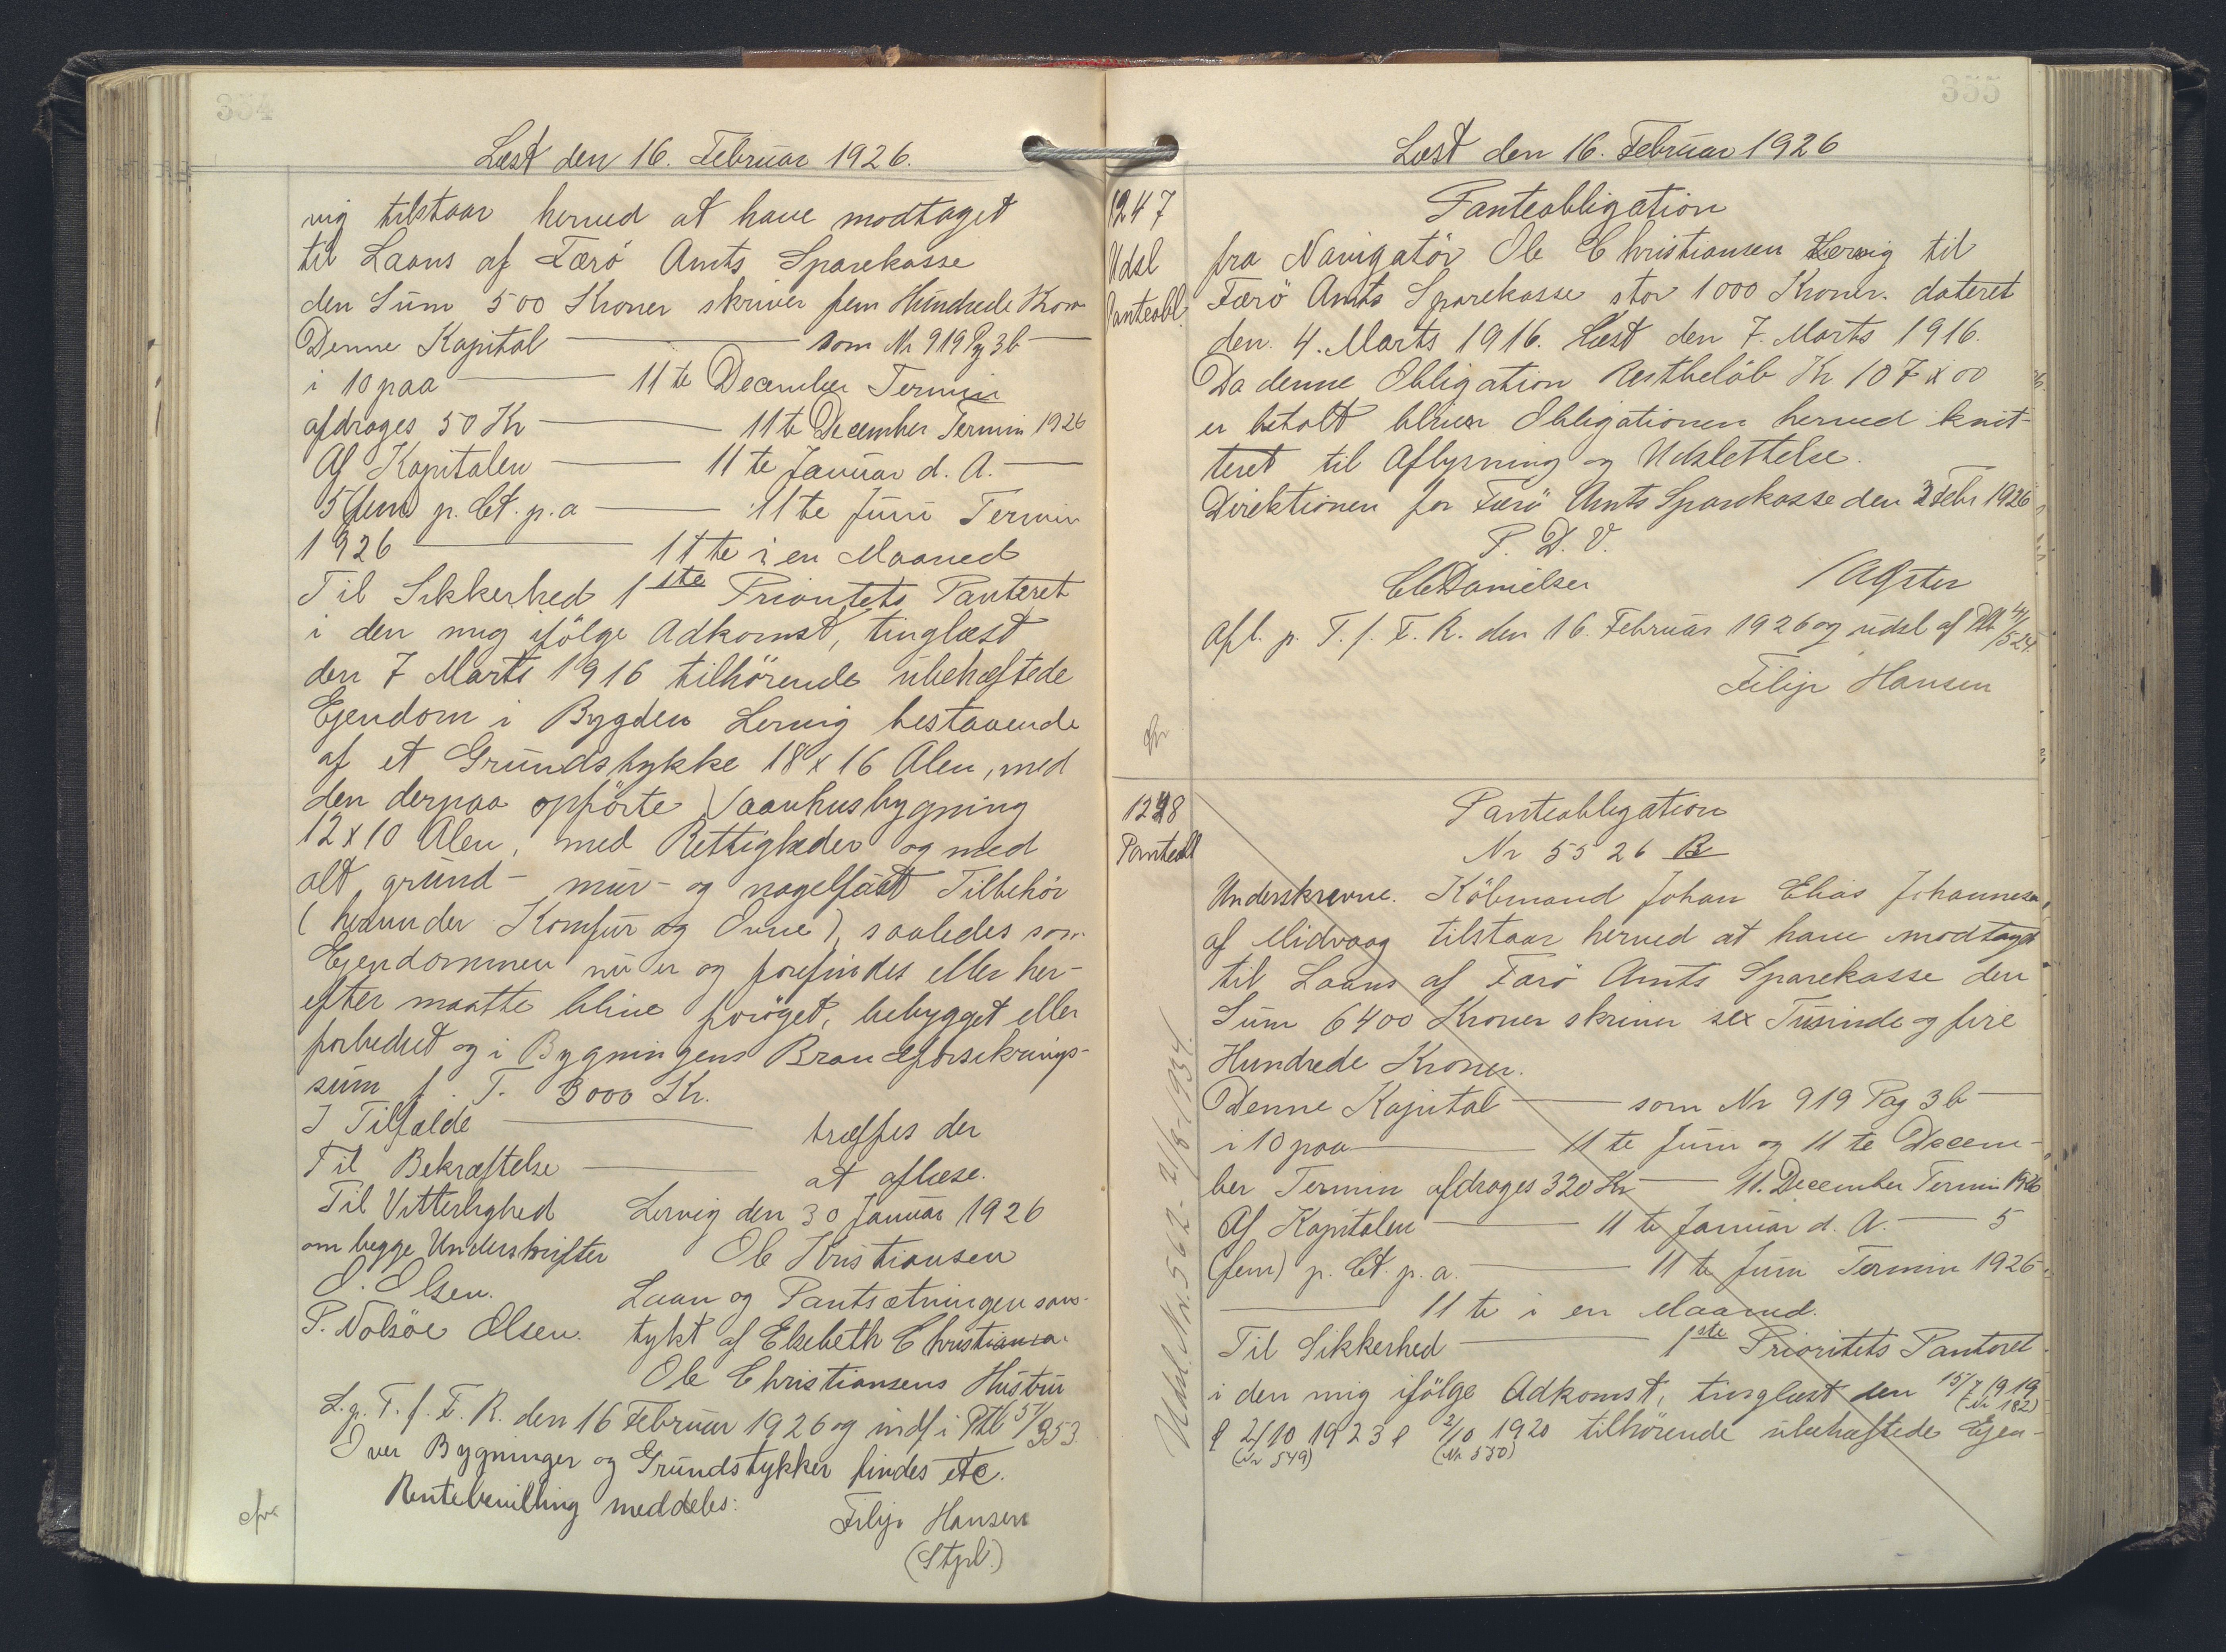 354
Læst den 16. Februar 1926.
vig tilstaar herved at have modtaget
til Laans af Færö Amts Sparekasse
den Sum 500 Kroner skriver fem Hundrede Kron
Denne Kapital — som Nr 919 Pg 3b —
i 10 paa — 11te December Termin
afdrages 50 Kr — 11te December Termin 1926
Af Kapitalen — 11te Januar d. A. —
5 (fem) p. Ct. p. a — 11te Juni Termin
1926 — 11te i en Maaned
Til Sikkerhed 1ste Prioritets Panteret
i den mig ifölge Adkomst, tinglæst
den 7 Marts 1916 tilhörende ubehæftede
Ejendom i Bygden Lervig bestaaende
af et Grundstykke 18 x 16 Alen, med
den derpaa opförte Vaanhusbygning
12 x 10 Alen, med Rettigheder og med
alt grund- mur- og nagelfast Tilbehör
(herunder Komfur og Ovne), saaledes som
Ejendommen nu er og forefindes eller her-
efter maatte blive foröget, bebygget eller
forbedret og i Bygningens Brandforsikrings-
sum f. T. 3000 Kr.
I Tilfælde — træffes der
Til Bekræftelse — at aflæse.
Til Vitterlighed Lervig den 30 Januar 1926
om begge Underskrifter Ole Kristiansen
O. Olsen. Laan og Pantsætningen sam-
P. Nolsöe Olsen. tykt af Elsebeth Christiansen
Ole Christiansens Hustru
L. p. T. f. F. R. den 16 Februar 1926 og indf i Ptb 51/353
Over Bygninger og Grundstykker findes etc.
Rentebevilling meddeles:
Filip Hansen
(Stpl.)
355
Læst den 16. Februar 1926
1247
Udsl
Panteobl.
Panteobligation
fra Navigatör Ole Christiansen Lervig til
Færö Amts Sparekasse stor 1000 Kroner. dateret
den. 4. Marts 1916. Læst den 7. Marts 1916.
Da denne Obligation Restbelöb Kr 107 x 00
er betalt bliver Obligationen herved kvit-
teret til Aflysning og Udslettelse.
Direktionen for Færö Amts Sparekasse den 3 Febr 1926
P. D. V.
C Danielsen
Afl. p. T. f. F. R. den 16. Februar 1926 og udsl af Ptb 41/524.
Filip Hansen
1248
Panteobl
Panteobligation
Nr 5526 B
Underskrevne. Köbmand Johan Elias Johannesen
af Midvaag tilstaar herved at have modtaget
til Laans af Færö Amts Sparekasse den
Sum 6400 Kroner skriver sex Tusinde og fire
Hundrede Kroner.
Denne Kapital — som Nr 919 Pag 3b —
i 10 paa — 11te Juni og 11te Decem-
ber Termin afdrages 320 Kr — 11. December Termin 1926
Af Kapitalen — 11te Januar d. A. — 5
(fem) p. Ct. p. a. — 11te Juni Termin 1926.
— 11te i en Maaned.
Til Sikkerhed — 1ste Prioritets Panteret
i den mig ifölge Adkomst, tinglæst den 15/7 1919 (Nr 182)
& 2/10 1923 & 2/10 1920 tilhörende ubehæftede Ejen-
(Nr 549) (Nr 550)
Udsl. Nr. 562 - 21/8-1934.